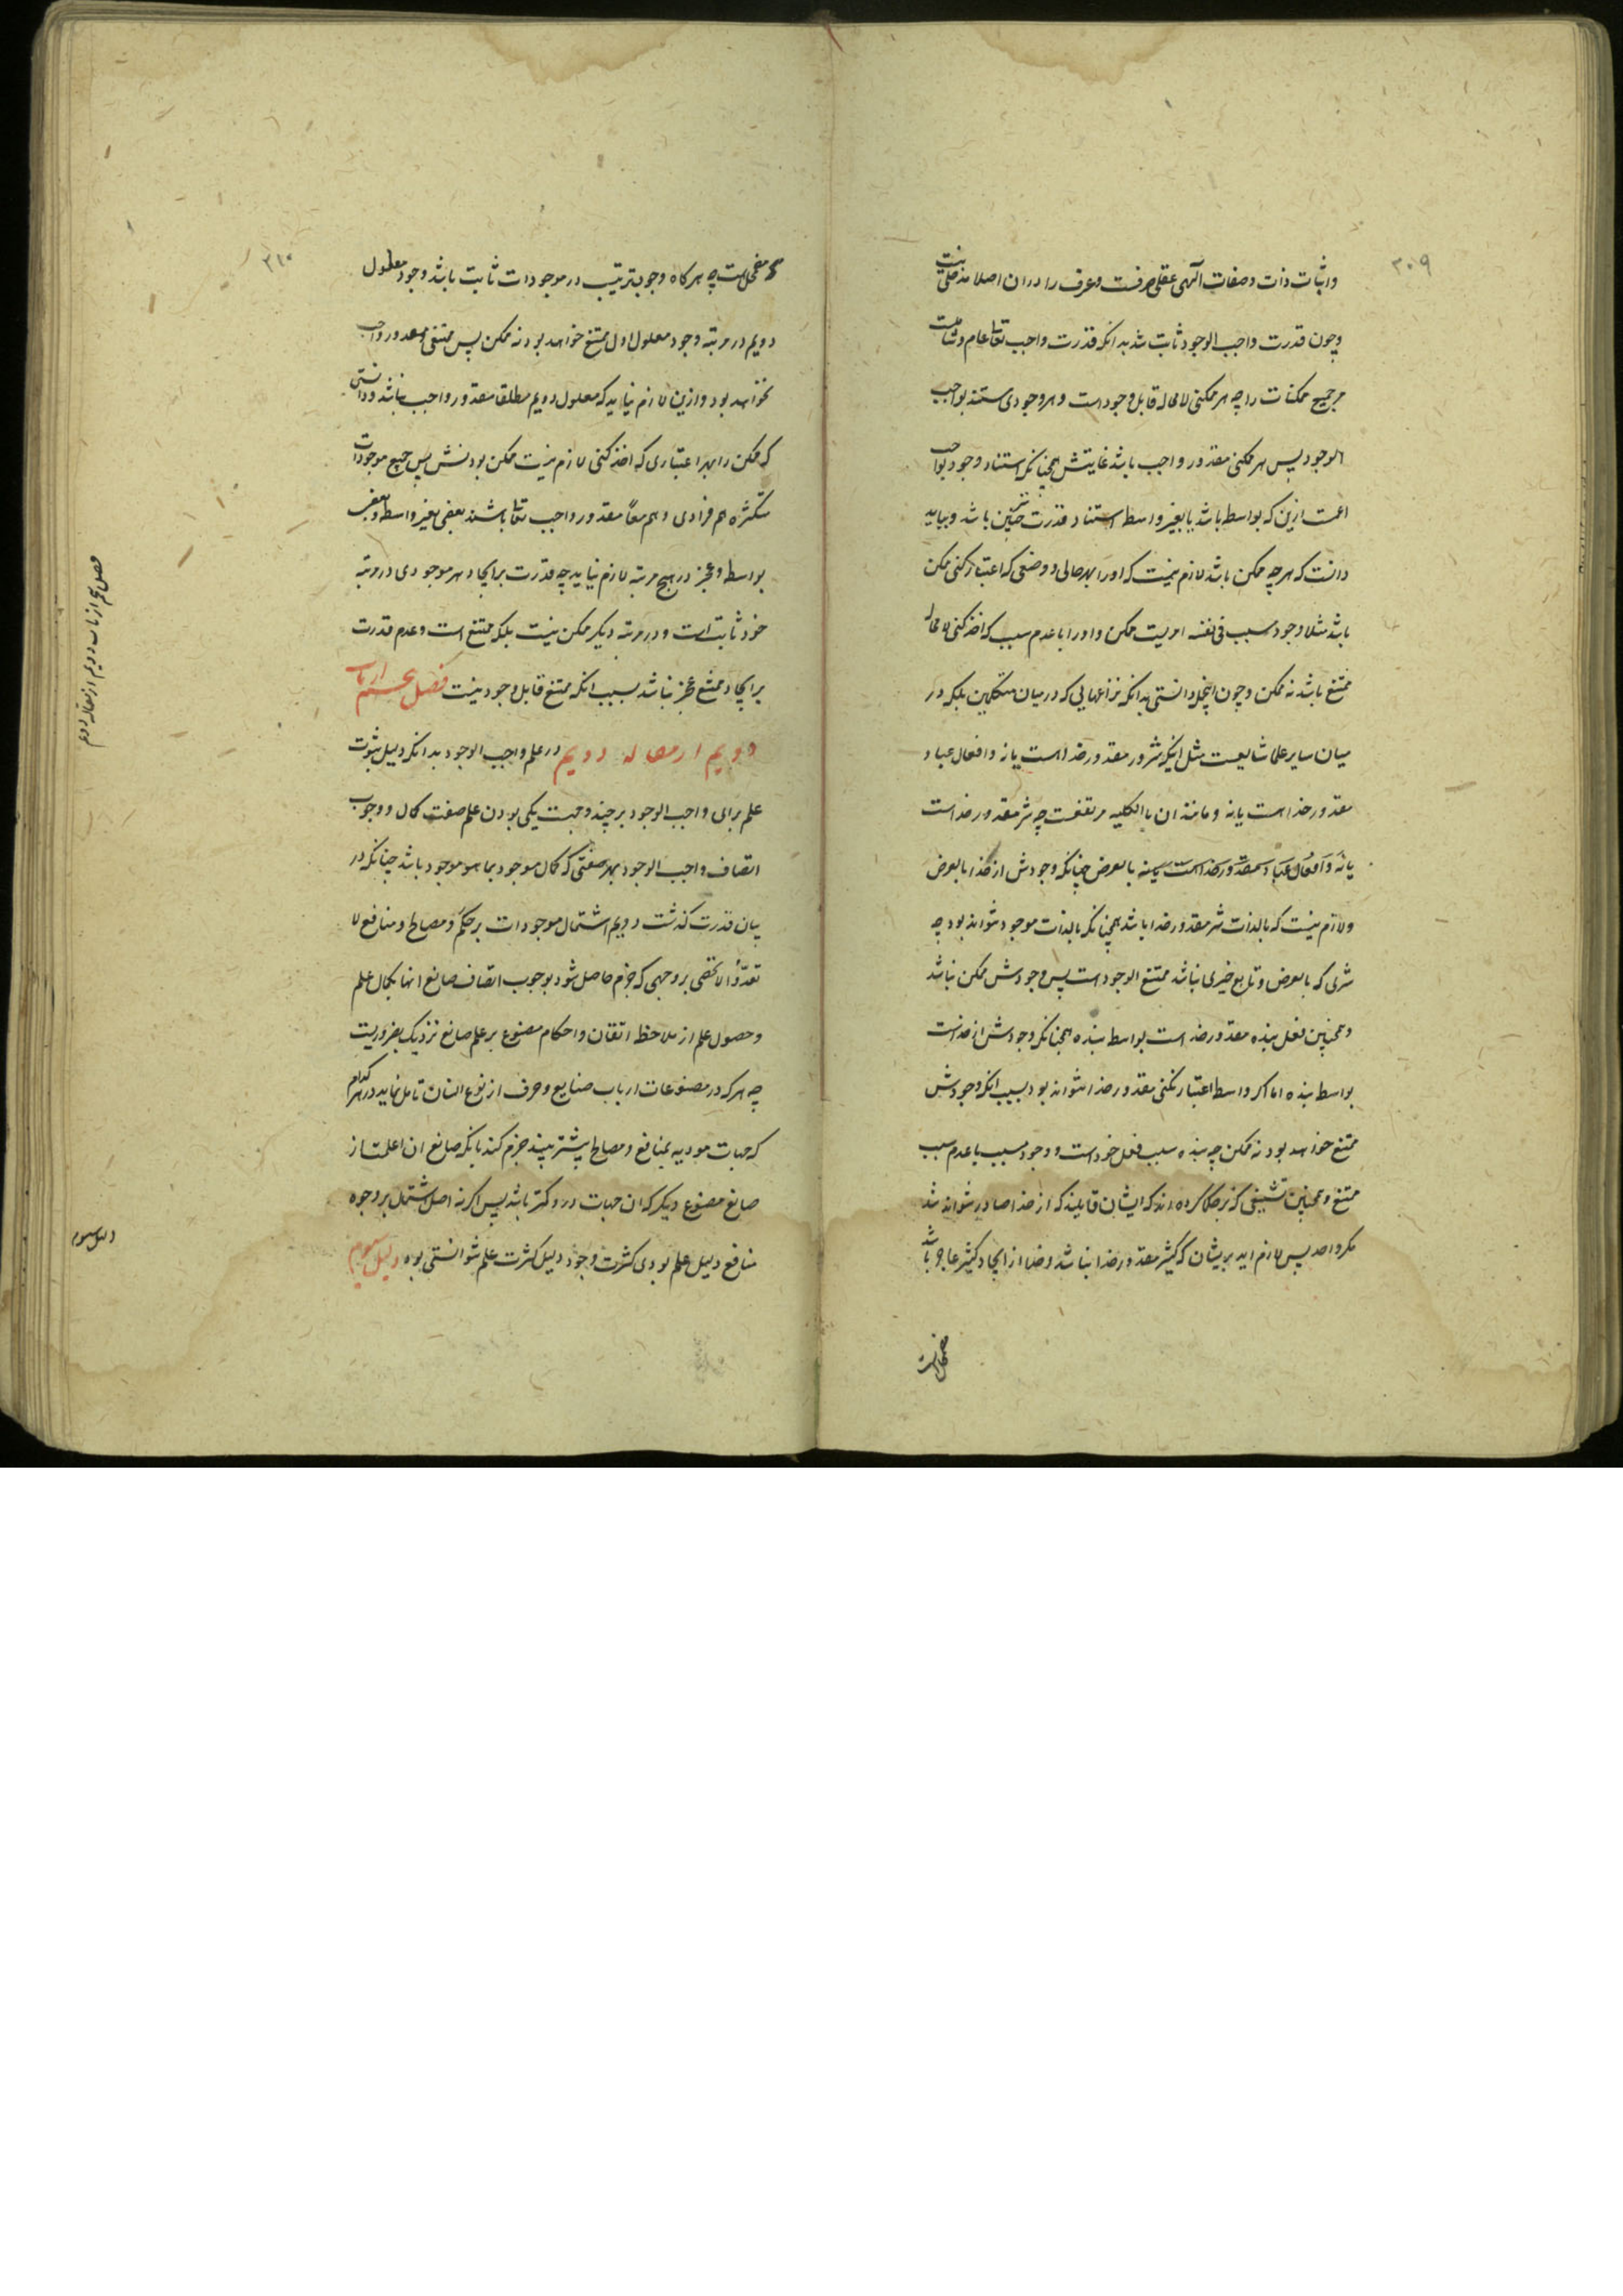 ۳۰۹
واثبات ذات وصفات الهی عقلی صرفست وعرف را دران اصلا مدخلی نیست
وچون قدرت واجب الوجود ثابت شد بدانکه قدرت واجب تعالی عام وشاملست
مر جمیع ممکنات را چه هر ممکنی لامحاله قابل وجود است وهر وجودی مستند بواجب
الوجود پس هر ممکنی مقدور واجب باشد غایتش همچنانکه استناد وجود بواجب
اعمست ازین که بواسطه باشد یا بغیر واسطه استناد قدرت نیز چنین باشد وبباید
دانست که هر چه ممکن باشد لازم نیست که او را بهر حالی ووضعی که اعتبار کنی ممکن
باشد مثلا وجود مسبب فی نفسه امریست ممکن واو را با عدم سبب که اخذ کنی لامحاله
ممتنع باشد نه ممکن وچون اینجمله دانستی بدانکه نزاعهایی که در میان متکلمین بلکه در
میان سایر علما شایعست مثل اینکه شرور مقدور خداست یا نه وافعال عباد
مقدور خداست یا نه ومانند ان بالکلیه مرتفعست چه شر مقدور خداست
بالعرض چنانکه وجودش از خدا بالعرض
ولازم نیست که بالذات شر مقدور خدا باشد همچنانکه بالذات موجود نتواند بود چه
شری که بالعرض وتابع خیری نباشد ممتنع الوجود است پس وجودش ممکن نباشد
وهمچنین فعل بنده مقدور خداست بواسطه بنده همچنانکه وجودش از خداست
بواسطه بنده اما اگر واسطه اعتبار نکنی مقدور خدا نتواند بود بسبب انکه وجودش
ممتنع خواهد بود نه ممکن چه بنده سبب فعل خود است ووجود مسبب با عدم سبب
ممتنع وهمچنین تشنیعی که بر حکما کرده اند که ایشان قایلند که از خدا صادر نتواند شد
مگر واحد پس لازم اید بر ایشان که کثیر مقدور خدا نباشد وخدا از ایجاد کثیر عاجز باشد
مضمحل است
۳۱۰
مضمحل است چه هرگاه وجوب ترتیب در موجودات ثابت باشد وجود معلول
دویم در مرتبه وجود معلول اول ممتنع خواهد بود نه ممکن پس ممتنعی مقدور واجب
نخواهد بود وازین لازم نیاید که معلول دویم مطلقا مقدور واجب نباشد ودانستی
که ممکن را بهر اعتباری که اخذ کنی لازم نیست ممکن بودنش پس جمیع موجودات
متکثره هم فرادی وهم معاً مقدور واجب تعالی باشند بعضی بغیر واسطه وبعضی
بواسطه وعجز در هیچ مرتبه لازم نیاید چه قدرت بر ایجاد هر موجودی در مرتبه
خود ثابت است ودر مرتبه دیگر ممکن نیست بلکه ممتنع است وعدم قدرت
بر ایجاد ممتنع عجز نباشد بسبب انکه ممتنع قابل وجود نیست فصل پنجم از باب
دویم از مقاله دویم در علم واجب الوجود بدانکه دلیل ثبوت
علم برای واجب الوجود بر چند وجهست یکی بودن علم صفت کمال ووجوب
اتصاف واجب الوجود بهر صفتی که کمال موجود بما هو موجود باشد چنانکه در
بیان قدرت گذشت دویم اشتمال موجودات بر حکم ومصالح ومنافع لا
تعدّ ولا تحصی بر وجهی که جزم حاصل شود بوجوب اتصاف صانع انها بکمال علم
وحصول علم از ملاحظه اتقان واحکام مصنوع بر علم صانع نزدیک بضروریست
چه هر که در مصنوعات ارباب صنایع وحرف از نوع انسان تامل نماید در هر کدام
که جهات مودیه بمنافع ومصالح بیشتر بیند جزم کند بانکه صانع ان اعلمست از
صانع مصنوع دیگر که ان جهات در او کمتر باشد پس اگر نه اصل اشتمال بر وجوه
منافع دلیل علم بودی کثرت وجوه دلیل کثرت علم نتوانستی بود دلیل سیوم
فصل پنجم از باب دویم از مقاله دویم
دلیل سیوم